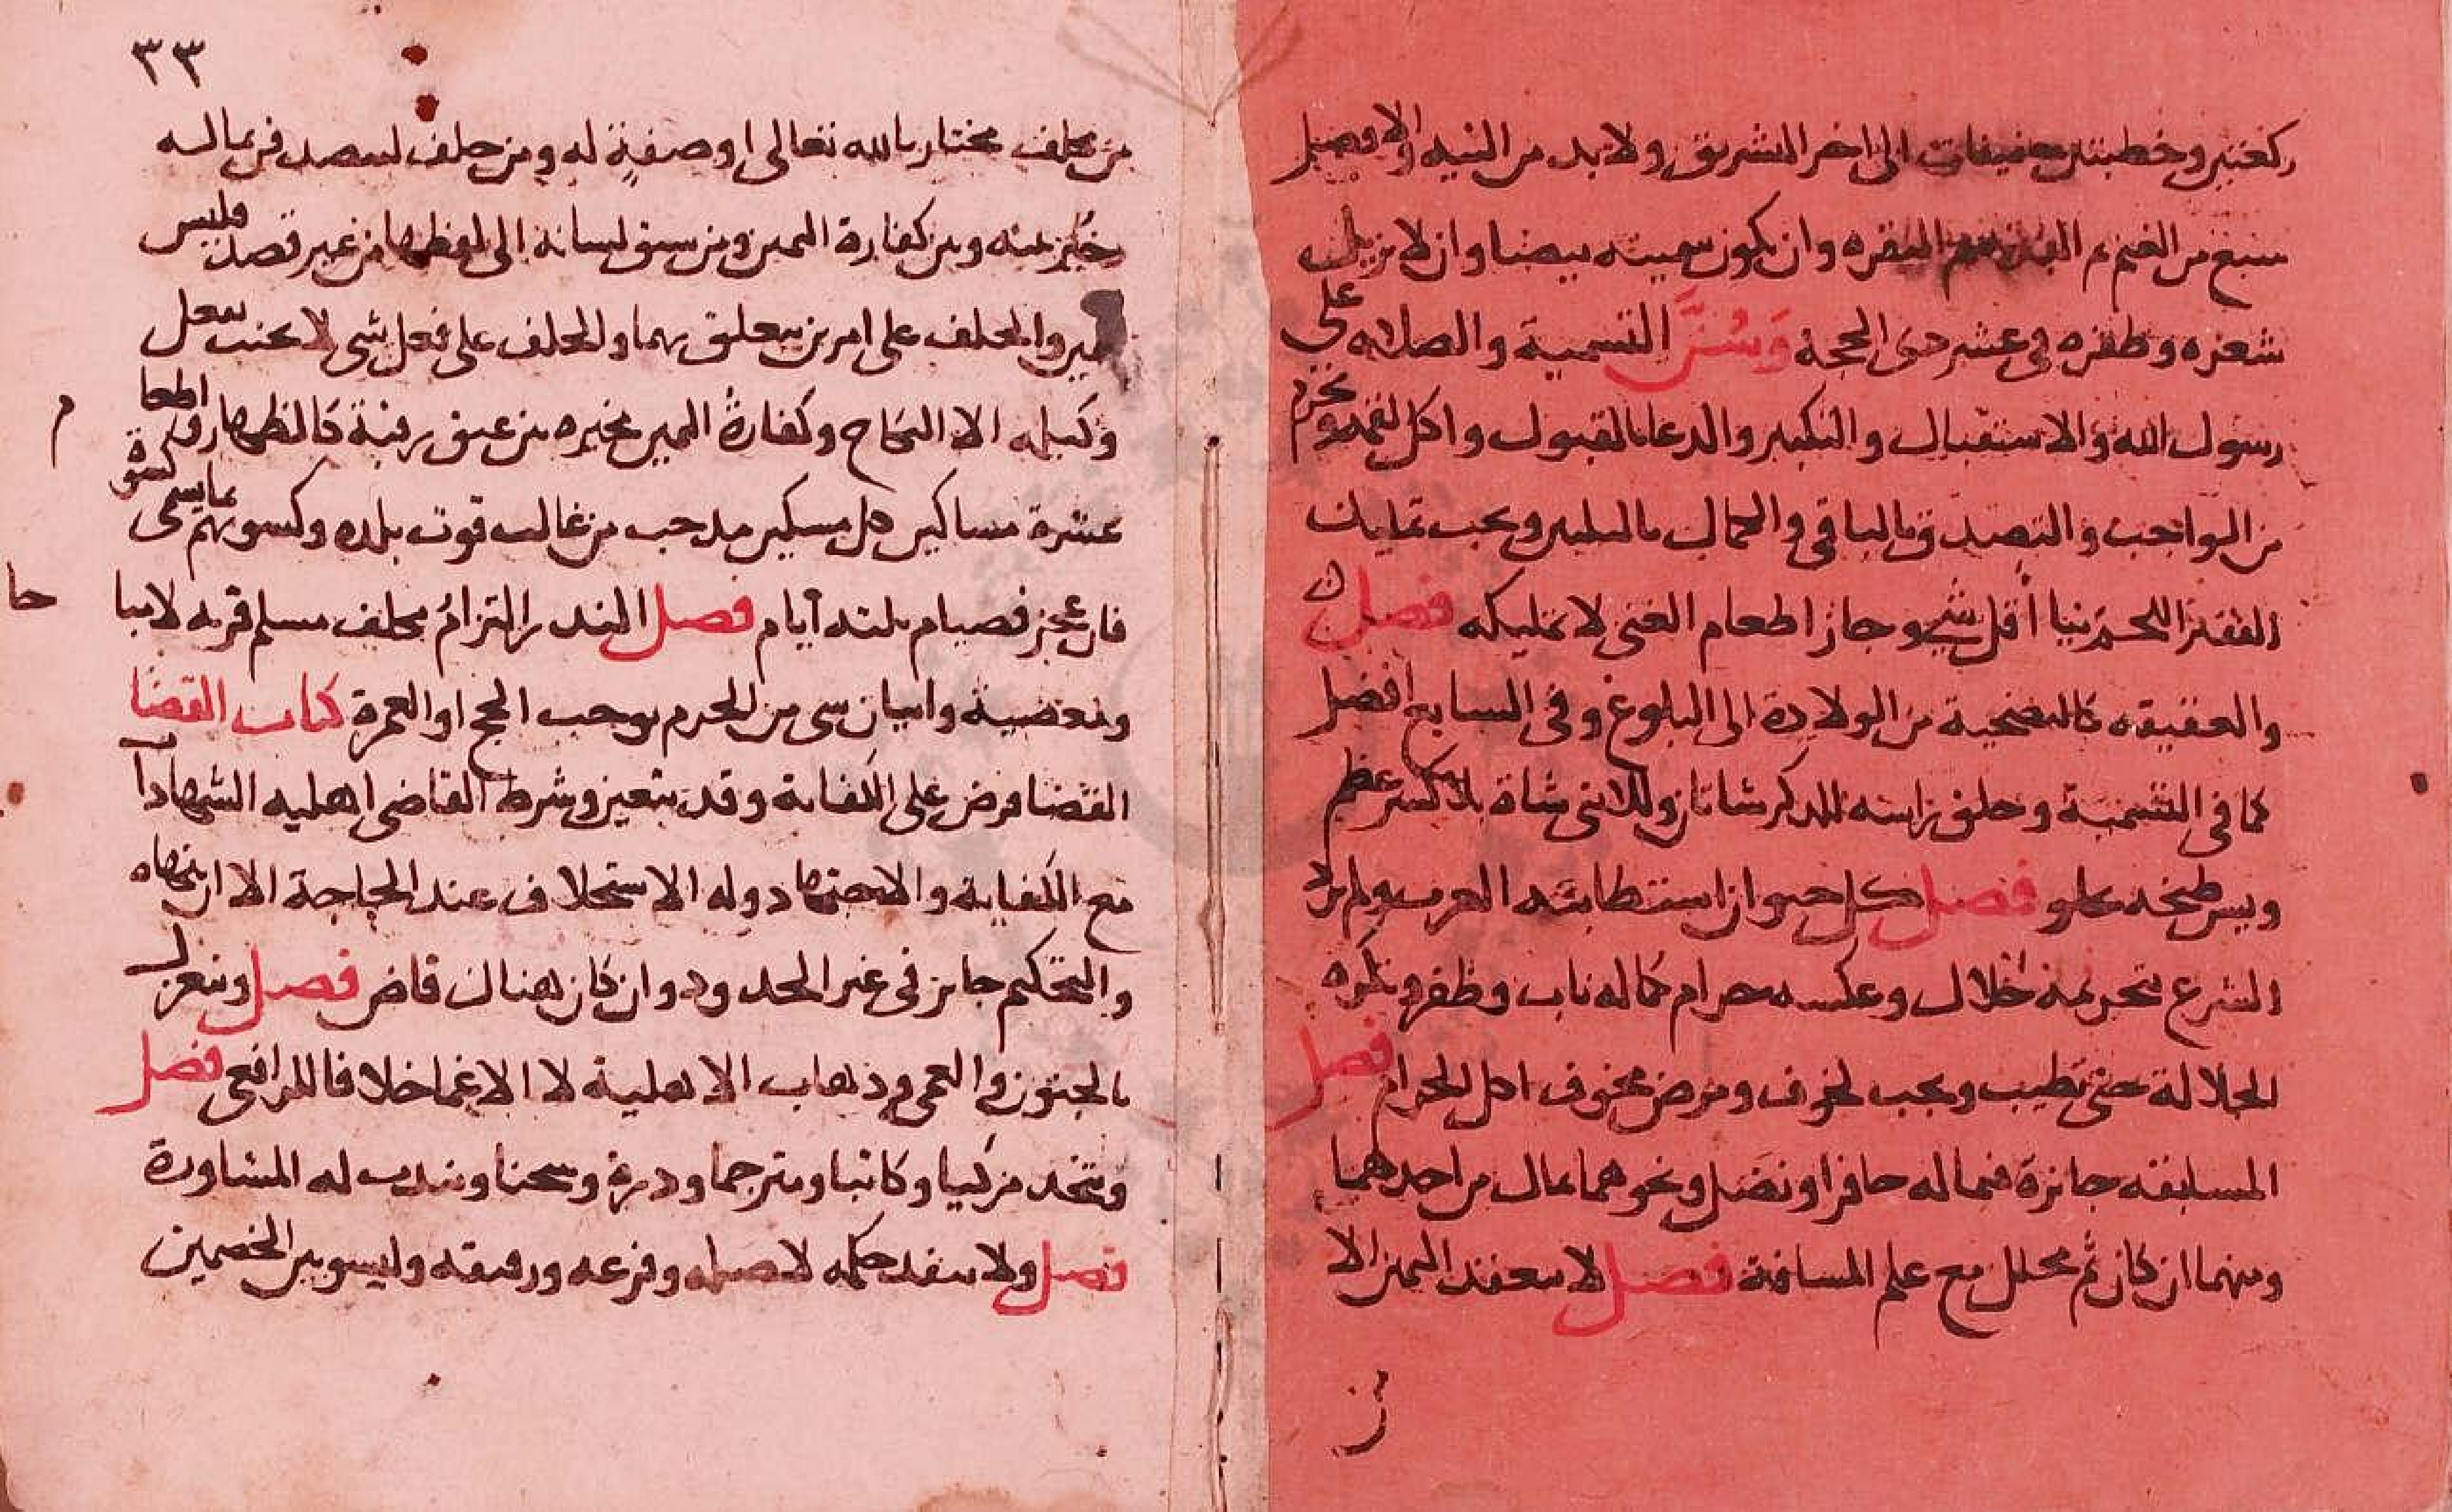 ركعتين وخطبتين خفيفات الى اخر التشريق ولا بد من النيه والافضل
سبع من الغنم ثم البقره وان يكون سمينه بيضا وان لا يزيل
شعره وظفره في عشر ذى الحجة وَسُنَّ التسمية والصلاه على
رسول الله والاستقبال والتكبير والدعا بالقبول واكل لقم ويحرم
من الواجب والتصدق بالباقي والكمال بالثلثين ويجب تمليك
الفقير اللحم نيا اقل شي وجاز اطعام الغنى لا تمليكه فصل
والعقيقه كالتضحية من الولادة الى البلوغ وفى السابع افضل
كما في التسمية وحلق راسه للذكر شاتان وللانثى شاة بلا كسر عظم
ويسن طبخه بحلو فصل كل حيوان استطابته العرب ولم يرد
الشرع بتحريمه حلال وعكسه حرام كماله ناب وظفر وتكره
الجلالة حتى تطيب ويجب لخوف ومرض مخوف اكل الحرام فصل
المسابقه جائزة فيما له حافر او نصل ونحوهما بمال من احدهما
ومنهما ان كان ثم محلل مع علم المسافة فصل لا ينعقد اليمين الا
٣٣
من مكلف مختار بالله تعالى او صفة له ومن حلف ليتصدقن بماله
خُيّر بينه وبين كفارة اليمين ومن سبق لسانه الى لفظها من غير قصد فليس
يمين والحلف على امرين يتعلق بهما والحلف على فعل شى لا يحنث بفعل
وكيله الا النكاح وكفارةُ اليمين مخيره من عتق رقبة كالظهار واطعا
م
عشرة مساكين كل مسكين مد حب من غالب قوت بلده وكسوتهم بما يسمى كسوة
فان عجز فصيام ثلثه ايام فصل النذر التزامُ مكلف مسلم قربه لا مبا
حا
ومعصية واتيان شى من الحرم يوجب الحج او العمرة كتاب القضا
القضا فرض على الكفاية وقد يتعين وشرط القاضى اهليه الشهادات
مع الكفاية والاجتهاد وله الاستخلاف عند الحاجة الا ان نهاه
والتحكيم جايز فى غير الحدود وان كان هناك قاض فصل وينعزل
بالجنون والعمى وذهاب الاهلية لا الاغما خلافا للرافعى فصل
ويتخذ مزكيا وكاتبا ومترجما ودرة وسجنا ويندب له المشاورة
فصل ولا ينفذ حكمه لاصله وفرعه ورقيقه وليسو بين الخصمين